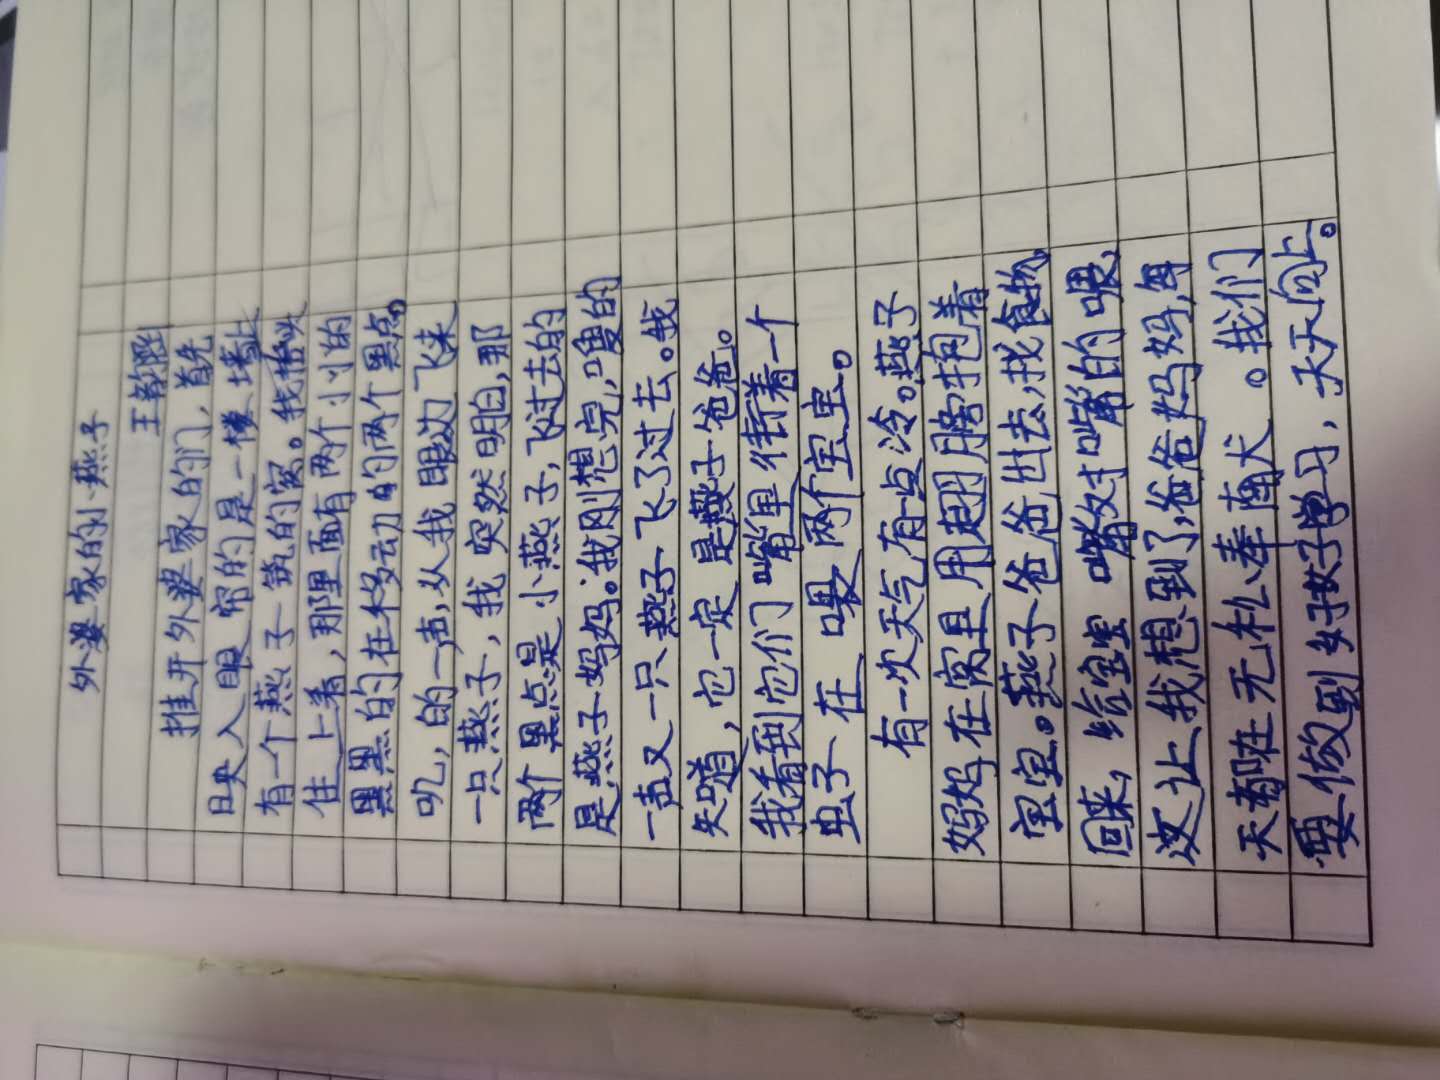 外婆家的小燕子
王
推开外婆家的们，首先
映入眼帘的是一楼墙上
有一个燕子筑的窝。我抬头
住上看，那里面有两个小小的
黑黑的在移动的两个黑点。
吃，的一声，从我眼边飞来
一只燕子，我突然明白，那
两个黑点是小燕子，飞过去的
是燕子妈妈。我刚想完，嗖的
一声又一只燕子飞了过去。我
知道，它一定是燕子爸爸。
我看到它们嘴里衔着一个
虫子在喂两个宝宝。
有一次天气有点冷。燕子
妈妈在窝且用翅膀抱着
宝宝。燕子爸爸出去，找食物
回来，给宝宝嘴对嘴的喂，
这让我想到了，爸爸妈妈，每
天都在无私奉南犬。我们
要做到好好学习，天天向上。